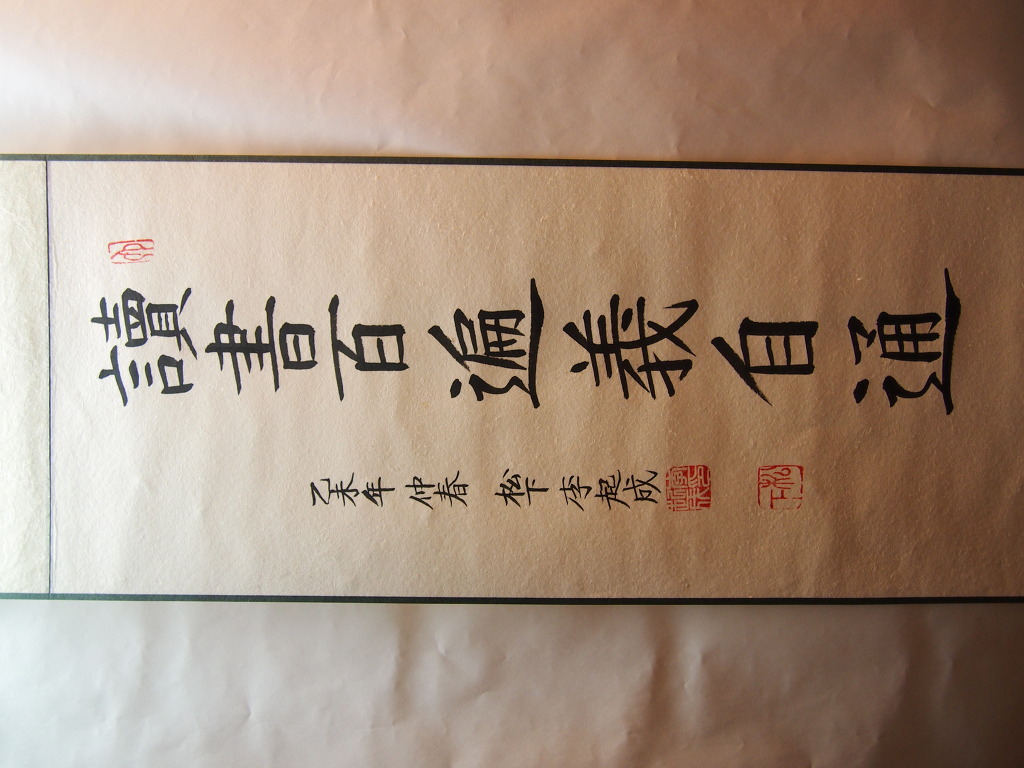 讀書百遍義自通
乙未年 仲春 松下 李起成
松下